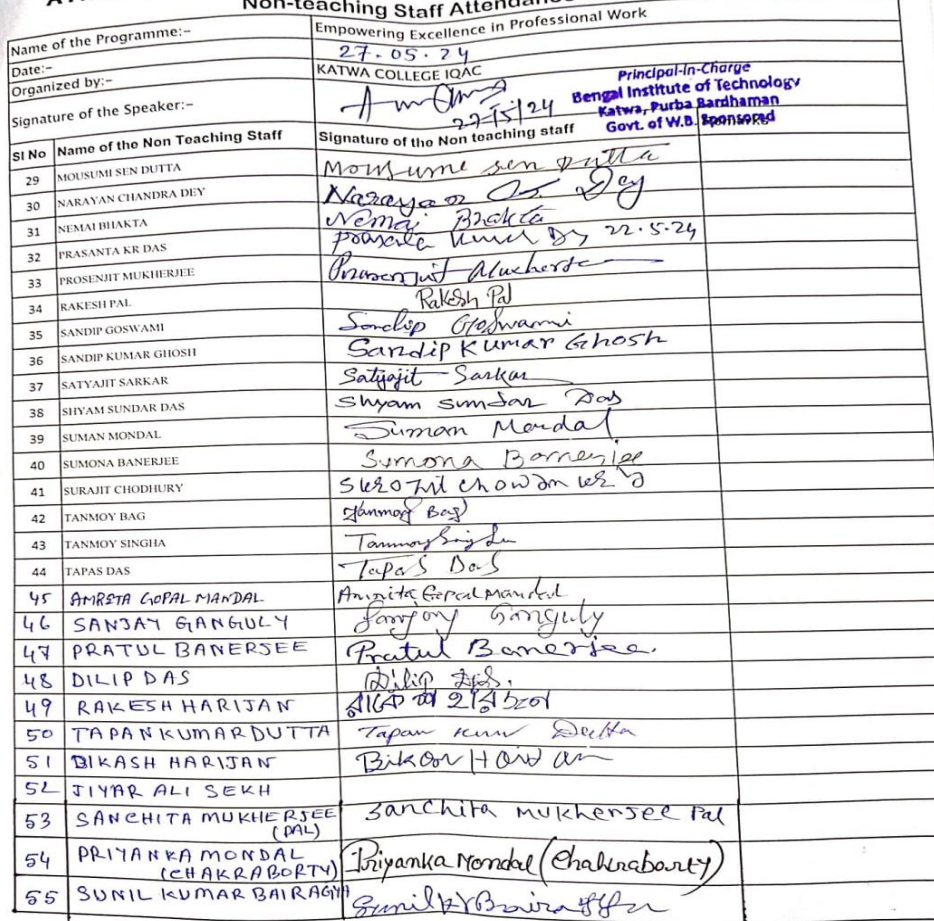 Non-teaching Staff Attendance
Name of the Programme:- Empowering Excellence in Professional Work
Date:- 27.05.24
Organized by:- KATWA COLLEGE IQAC
Signature of the Speaker:- 27/5/24
Principal-in-Charge
Bengal Institute of Technology
Katwa, Purba Bardhaman
Govt. of W.B. Sponsored
Sl No Name of the Non Teaching Staff Signature of the Non teaching staff Remarks
29 MOUSUMI SEN DUTTA Mousume sen Dutta
30 NARAYAN CHANDRA DEY Narayan Ch. Dey
31 NEMAI BHAKTA Nemai Bhakta
32 PRASANTA KR DAS Prasanta Kumar Das 22.5.24
33 PROSENJIT MUKHERJEE Prosenjit Mukherjee
34 RAKESH PAL Rakesh Pal
35 SANDIP GOSWAMI Sandip Goswami
36 SANDIP KUMAR GHOSH Sandip Kumar Ghosh
37 SATYAJIT SARKAR Satyajit Sarkar
38 SHYAM SUNDAR DAS Shyam Sundar Das
39 SUMAN MONDAL Suman Mondal
40 SUMONA BANERJEE Sumona Banerjee
41 SURAJIT CHODHURY
42 TANMOY BAG Tanmoy Bag
43 TANMOY SINGHA Tanmoy Singha
44 TAPAS DAS Tapas Das
45 AMRITA GOPAL MANDAL Amrita Gopal Mandal
46 SANJAY GANGULY Sanjay Ganguly
47 PRATUL BANERJEE Pratul Banerjee.
48 DILIP DAS Dilip Das.
49 RAKESH HARIJAN
50 TAPAN KUMAR DUTTA Tapan Kumar Dutta
51 BIKASH HARIJAN
52 JIYAR ALI SEKH
53 SANCHITA MUKHERJEE (PAL) Sanchita Mukherjee Pal
54 PRIYANKA MONDAL (CHAKRABORTY) Priyanka Mondal (Chakraborty)
55 SUNIL KUMAR BAIRAGYA